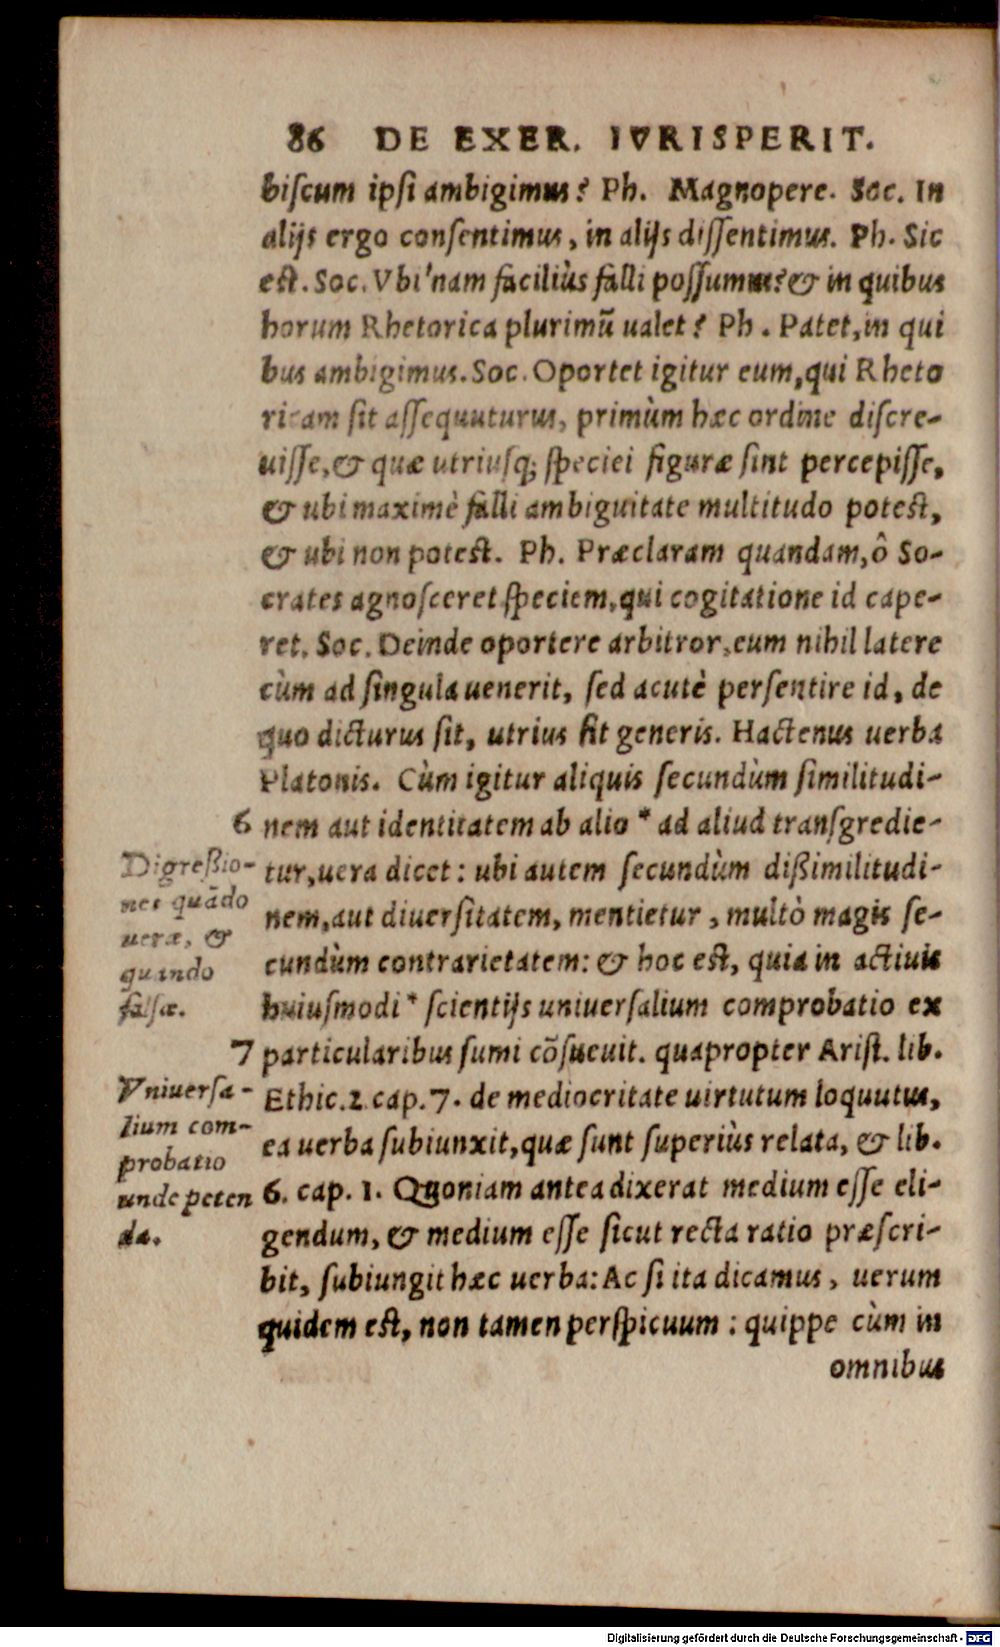 86 DE EXER. IVRISPERIT.
biſcum ipſi ambigimus? Ph. Magnopere. Soc. In
alijs ergo conſentimus, in alijs diſſentimus. Ph. Sic
eſt. Soc. Vbi'nam faciliùs falli poſſumus? & in quibus
horum Rhetorica plurimũ ualet? Ph. Patet, in qui
bus ambigimus. Soc. Oportet igitur eum, qui Rheto
ricam ſit aſſequuturus, primùm hæc ordine diſcre-
uiſſe, & quæ utriuſq; ſpeciei figuræ ſint percepiſſe,
& ubi maximè falli ambiguitate multitudo poteſt,
& ubi non poteſt. Ph. Præclaram quandam, ô So-
crates agnoſceret ſpeciem, qui cogitatione id cape-
ret. Soc. Deinde oportere arbitror, eum nihil latere
cùm ad ſingula uenerit, ſed acutè perſentire id, de
quo dicturus ſit, utrius ſit generis. Hactenus uerba
Platonis. Cùm igitur aliquis ſecundùm ſimilitudi-
6 nem aut identitatem ab alio * ad aliud tranſgredie-
tur, uera dicet: ubi autem ſecundùm dißimilitudi-
nem, aut diuerſitatem, mentietur, multò magis ſe-
cundùm contrarietatem: & hoc eſt, quia in actiuis
huiuſmodi * ſcientijs uniuerſalium comprobatio ex
7 particularibus ſumi cõſueuit. quapropter Ariſt. lib.
Ethic. 2 cap. 7. de mediocritate uirtutum loquutus,
ea uerba ſubiunxit, quæ ſunt ſuperiùs relata, & lib.
6. cap. 1. Quoniam antea dixerat medium eſſe eli-
gendum, & medium eſſe ſicut recta ratio præſcri-
bit, ſubiungit hæc uerba: Ac ſi ita dicamus, uerum
quidem eſt, non tamen perſpicuum: quippe cùm in
omnibus
Digreßio-
nes quãdo
ueræ, &
quando
falſæ.
Vniuerſa-
lium com-
probatio
unde peten
da.
Digitalisierung gefördert durch die Deutsche Forschungsgemeinschaft - DFG